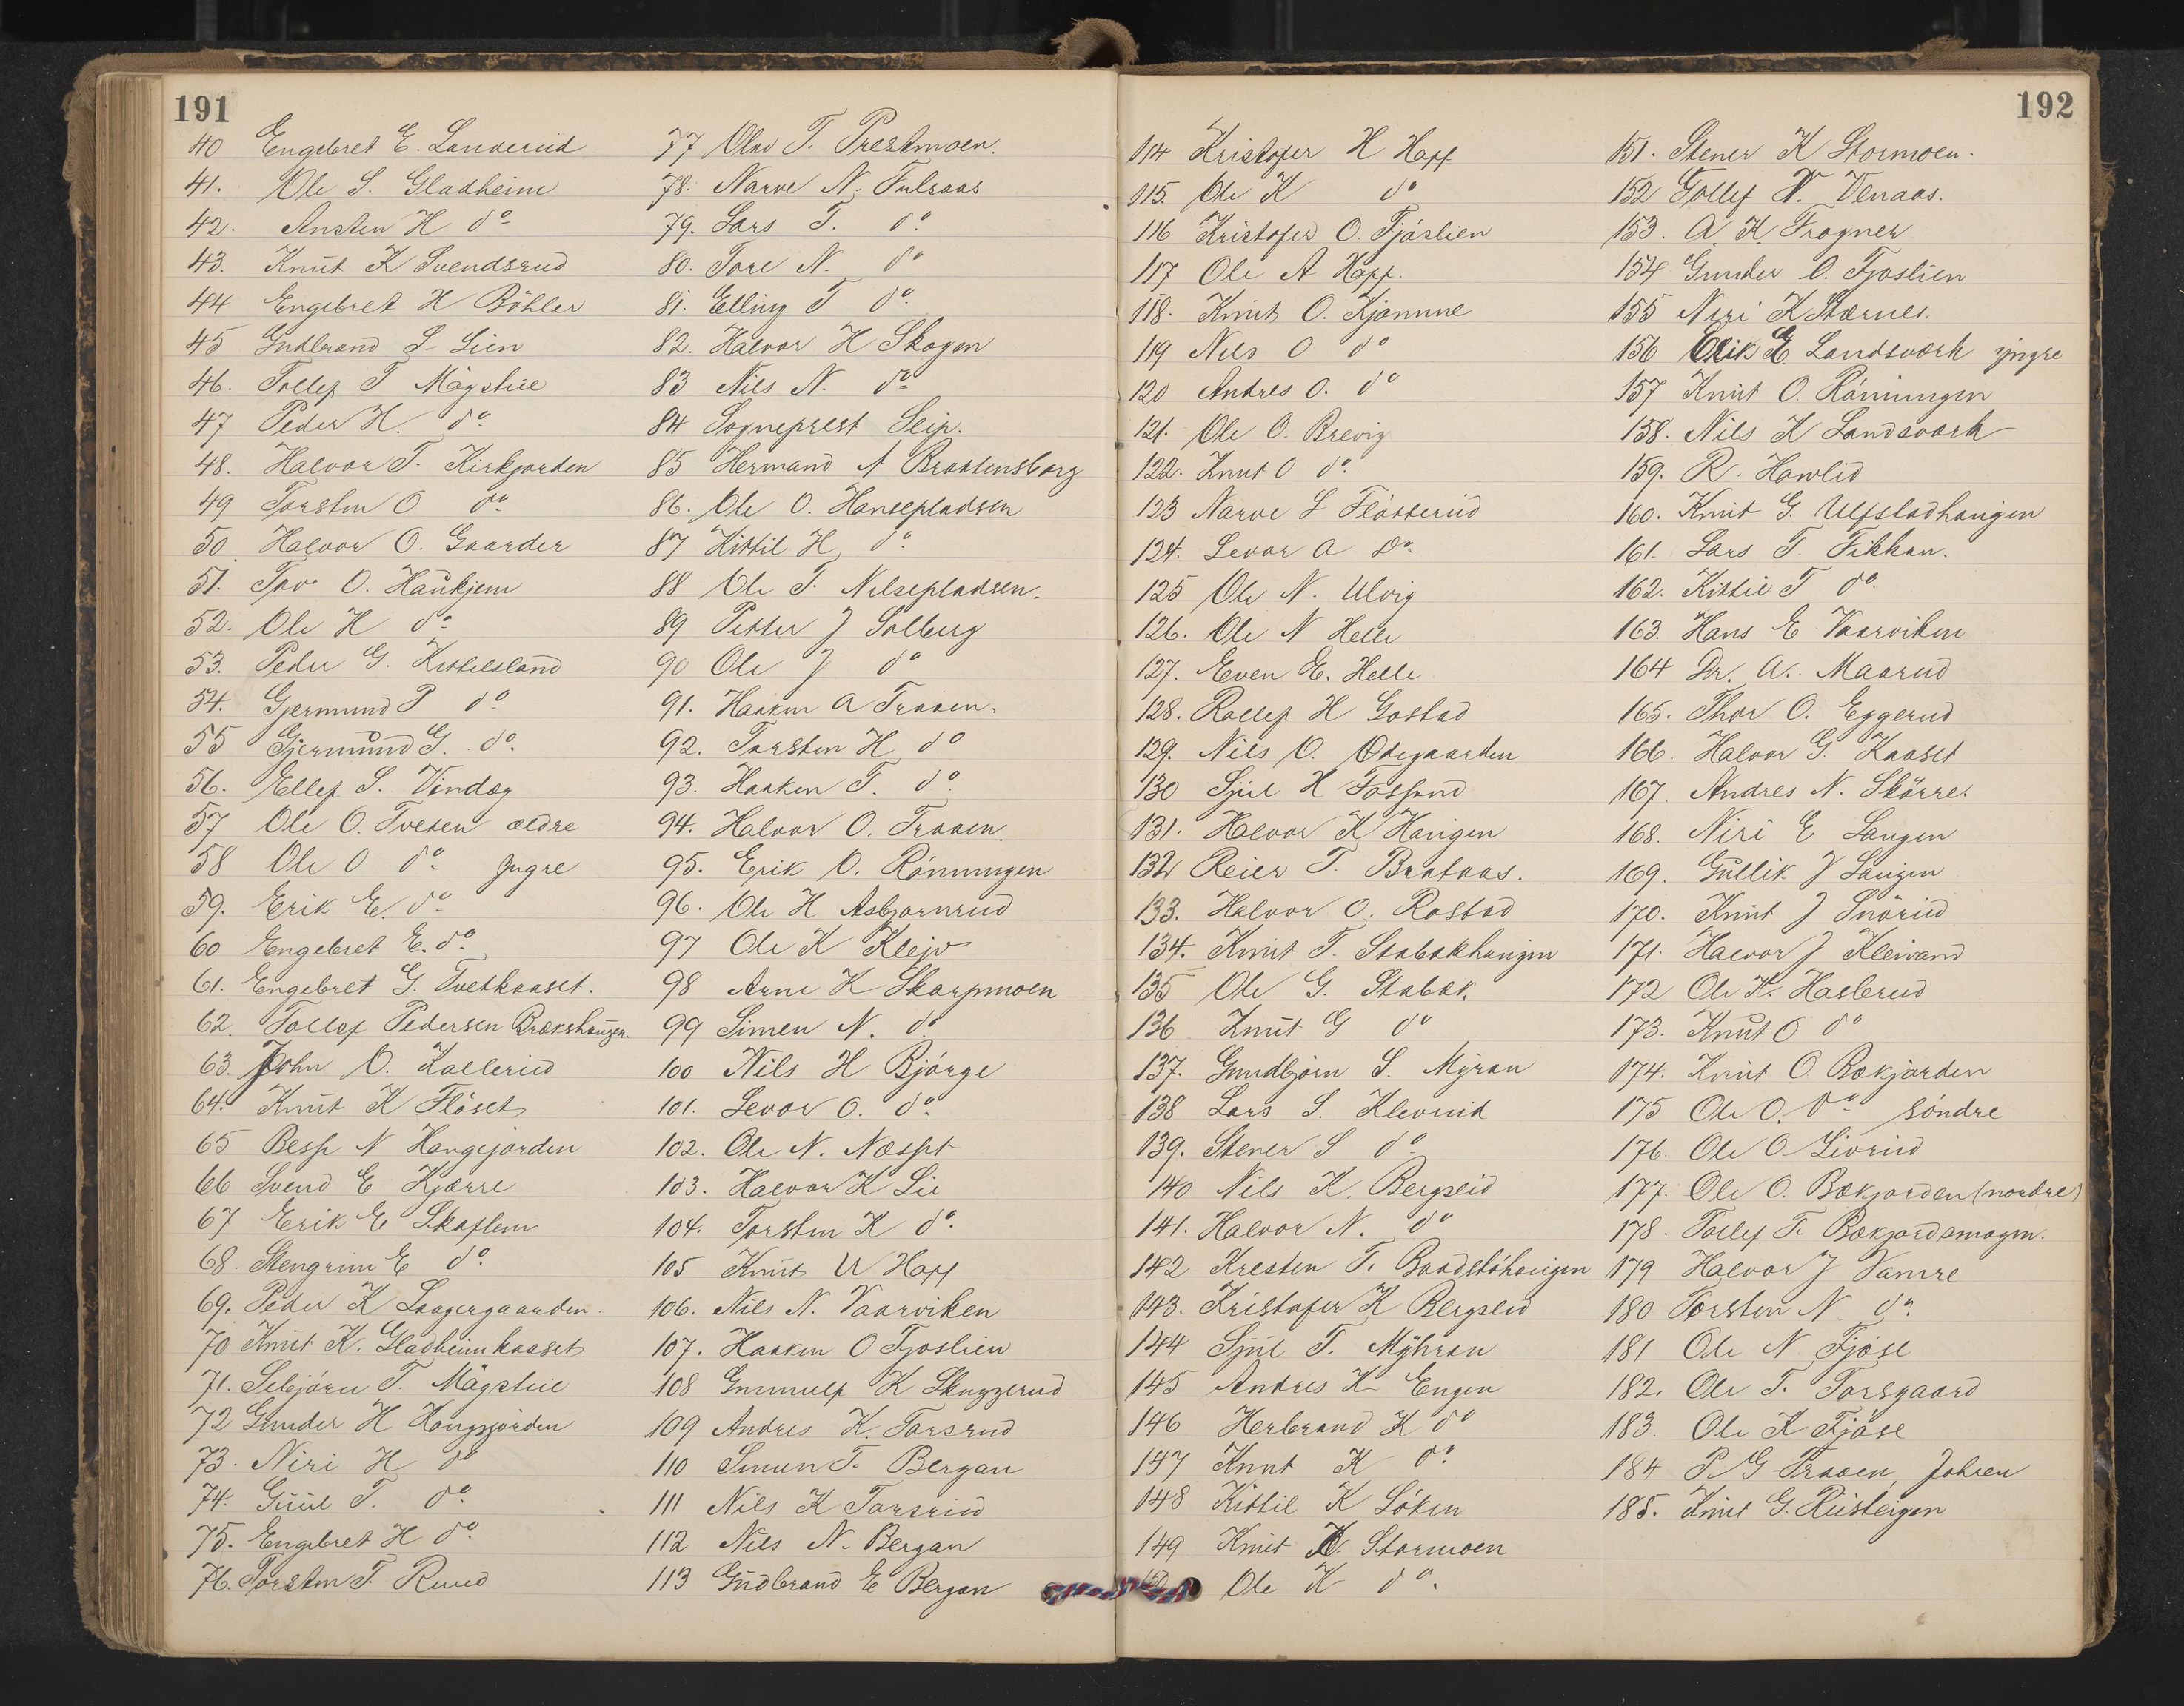 191
40 Engebret E. Landerud
41. Ole S. Gladheim
42. Ansten H do
43. Knut K Svendsrud
44 Engebret H Böhler
45 Gudbrand S. Lien
46. Tollef T Mågstue
47 Peder H. do
48. Halvor T. Kirkjorden
49 Torsten O do
50 Halvor O. Gaarder
51. Tov O. Haukjem
52. Ole H do
53. Peder G. Kittelsland
54. Gjermund P do
55 Gjermund G. do
56. Ellef S. Vindeg
57 Ole O. Tveten ældre
58 Ole O do yngre
59. Erik E. do
60 Engebret E. do
61. Engebret G. Tvetkaaset.
62. Tollef Pedersen Brækshaugen.
63. John O. Kollerud
64. Knut K Flöset
65 Bessе N Haugejorden
66 Svend E Kjærre
67 Erik E Skaflem
68. Stengrim E do
69. Peder K Laagergaarden.
70 Knut K. Gladheimkaaset
71. Sebjörn T. Mågstue
72 Gunder H Haugjorden
73. Niri H do
74. Guul T. do
75. Engebret H do
76. Torsten T. Ruud
77 Olav T. Prestmoen.
78. Narve N. Fulsaas
79. Lars T. do
80. Tore N. do
81. Elling T do
82. Halvor H Skogen
83 Nils N. do
84 Sogneprest Seip.
85 Hermand A Braatensberg
86. Ole O. Hansepladsen
87 Kittil H. do
88 Ole T. Nilsepladsen.
89 Petter J Solberg
90 Ole J do
91. Haaken A Traaen.
92. Torsten H do
93. Haaken T. do
94. Halvor O. Traaen.
95. Erik O. Rönningen
96. Ole H Asbjornrud
97 Ole K Kleiv
98 Arne K Skarpmoen
99 Simen N. do
100 Nils H Bjórge
101. Levor O. do
102. Ole N. Næsset
103. Halvor K Lie
104. Torsten K do
105 Knut W Hoff
106. Nils N. Vaarviken
107. Haaken O Fjoslien
108 Gunnulf K Skuggerud
109 Andres K. Torsrud
110 Simen T. Bergan
111 Nils K Torsrud
112 Nils N. Bergan
113 Gudbrand E Bergan
192
114 Kristofer H Hoff
115. Ole K do
116 Kristofer O. Fjóslien
117 Ole A Hoff.
118. Knut O. Kjomme
119 Nils O do
120 Andres O. do
121. Ole O. Brevig
122. Knut O do
123 Narve L Flósterud
124. Levor A Do
125 Ole N. Ulvig
126. Ole N Helle
127. Even E. Helle
128. Rollef H Gostad
129. Nils O. Ødegaarden
130 Sjul H Fossand
131. Halvor K Haugen
132 Reier T. Brataas.
133. Halvor O. Rostad
134. Knut T. Stabækhaugen
135 Ole G. Stabæk
136 Knut G do
137. Gundbjörn S. Mÿran
138 Lars S. Klevrud
139. Stener S do
140 Nils K. Bergseid
141. Halvor N. do
142 Kresten T. Baadstóhaugen
143. Kristofer K Bergseid
144 Sjul T. Mÿhran
145 Andres K Engen
146 Herbrand K do
147 Knut K do
148 Kittil K Lóken
149 Knut K. Stormoen
150 Ole K do
151. Stener K Stormoen.
152 Tollef N. Venaas.
153. A. K. Frogner
154 Gunder O. Fjoslien
155 Niri K Stærnes.
156 Erik E. Landsværk yngre
157 Knut O. Rönningen
158. Nils K Landsværk
159. R. Hawlid
160. Knut G. Ulfsladhaugen
161. Lars T. Fikkan.
162. Kittil T do
163. Hans E Vaarviken
164 Dr. A. Maarud
165. Thor O. Eggerud
166. Halvor G. Kaaset
167. Andres N. Skörre.
168. Niri E Langen
169. Gullik J Langen
170. Knut J Snörud
171. Halvor J Kleivand
172 Ole K. Haslerud
173. Knut O do
174. Knut O. Bækjorden
175 Ole O. do sóndre
176. Ole O Livrud
177. Ole O. Bækjorden (nordre)
178. Tollef T. Bækjordsmogen.
179 Halvor J Vamre
180 Torsten N do
181 Ole N Fjóse
182. Ole T. Torsgaard
183. Ole K Fjóse
184 P. G Traaen, Johsen
185. Knut G. Ruisteigen